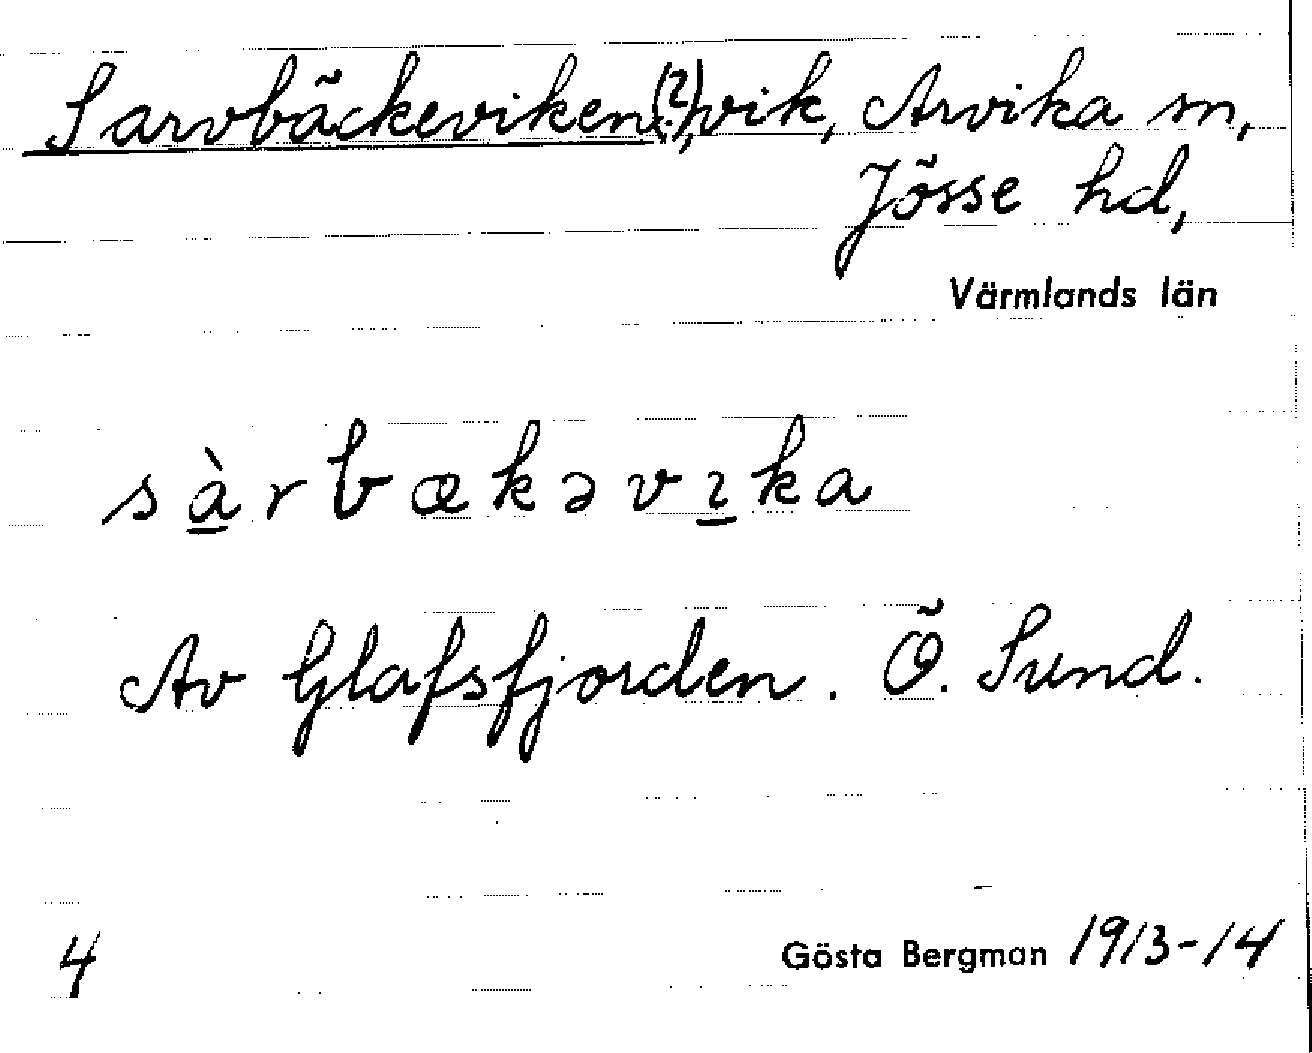 Sarvbäckeviken(?), vik, Arvika sn,
Jösse hd,
Värmlands län
sà̱rbækəvɪ̱ka
Av Glafsfjorden. Ö. Sund.
4 Gösta Bergman 1913-14